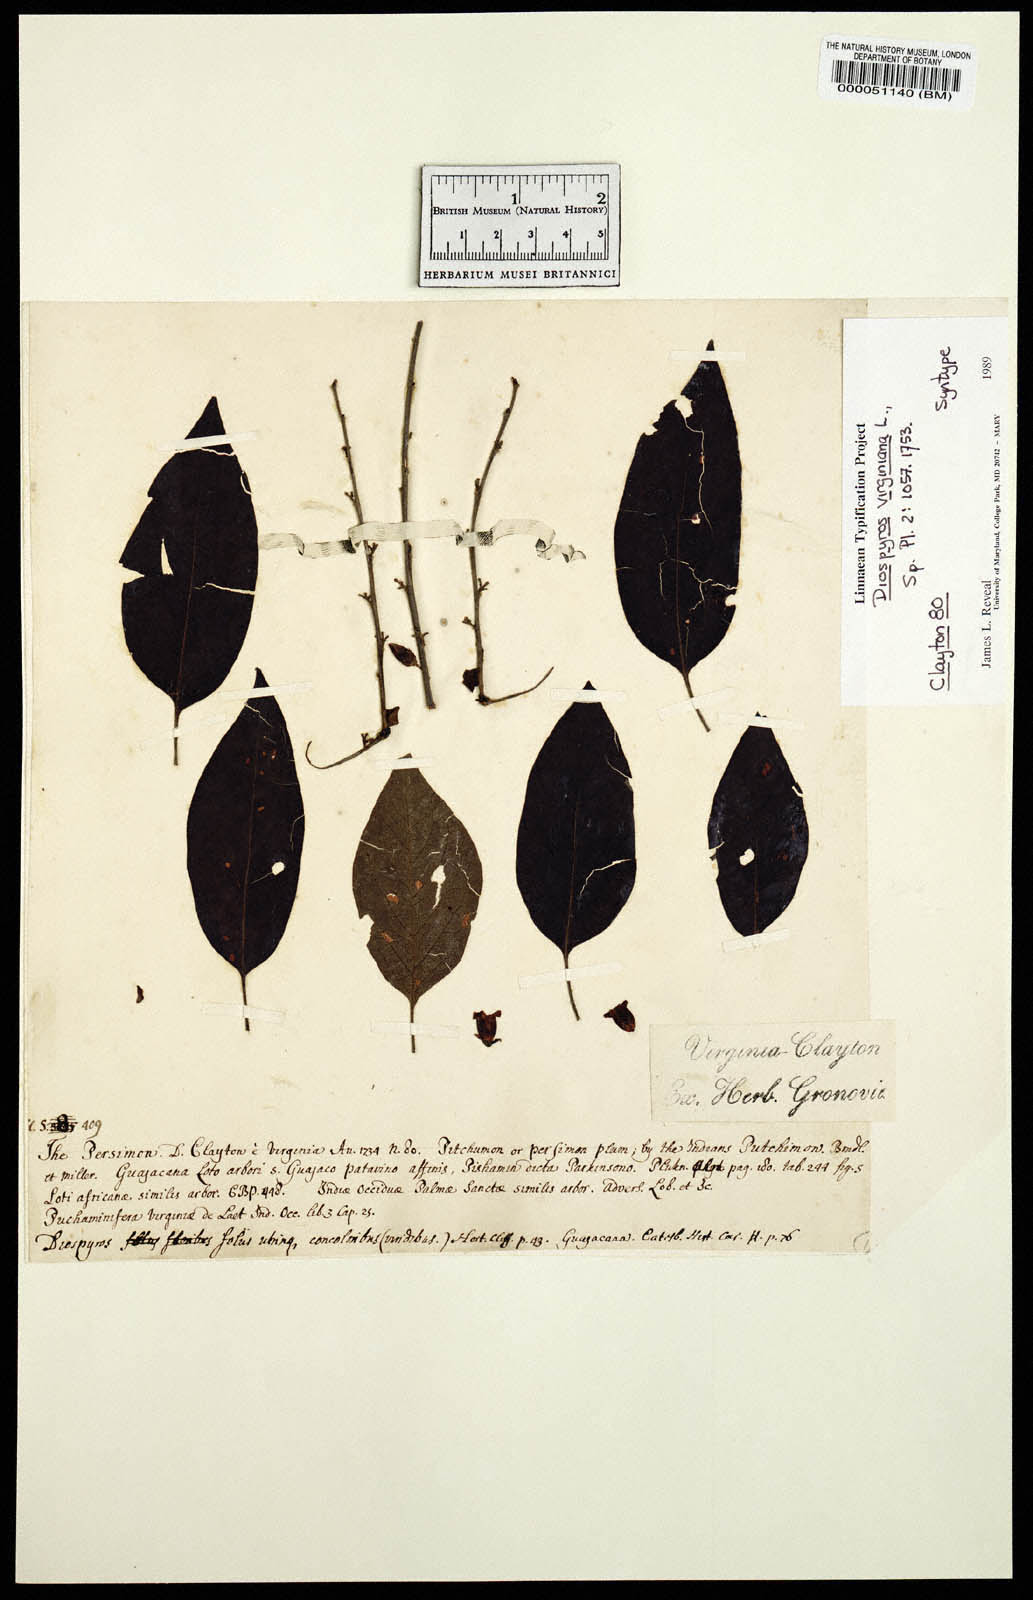 THE NATURAL HISTORY MUSEUM, LONDON
DEPARTMENT OF BOTANY
000051140 (BM)
1 2
BRITISH MUSEUM (NATURAL HISTORY)
1 2 3 4 5
HERBARIUM MUSEI BRITANNICI
Linnaean Typification Project
Diospyros virginiana L.,
Sp. Pl. 2: 1057. 1753.
Clayton 80
Syntype
James L. Reveal 1989
University of Maryland, College Park, MD 20742 – MARY
Virginia Clayton
Ex. Herb. Gronovii
409
The Persimon. D. Clayton è Virginia An. 1734 N. 80. Pitchumon or persimon plum; by the Indians Putchimon. Banist.
et miller. Guajacana Loto arbori s. Guajaco patavino affinis, Pishamin dicta Parkinsono. Plukn. pag. 180. tab. 244 fig. 5
Loti africanæ similis arbor. CBP. 448. Indiæ Occiduæ Palmæ Sanctæ similis arbor. Advers. Lob. et &c.
Puchaminifera Virginiæ de Laet Ind. Occ. lib. 3 Cap. 25.
Diospyros foliis utrinq, concoloribus (viridibus.) Hort. Cliff. p. 43. Guajacana. Catesb. Hist. Car. II. p. 76